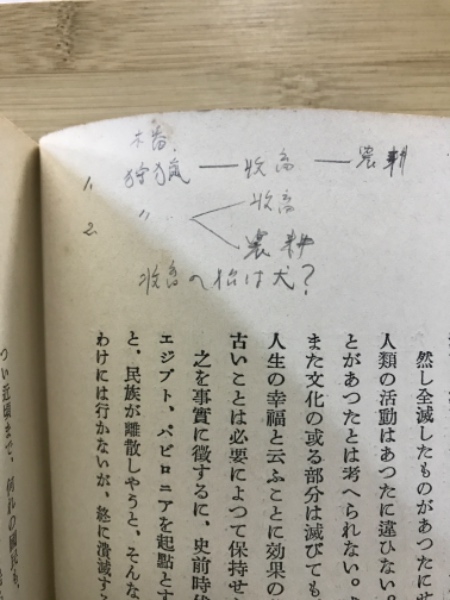 1, 狩猟 — 牧畜 — 農耕
2. 〃 牧畜
農耕
牧畜の始は犬?
然し全滅したものがあつたにせ
人類の活動はあつたに違ひない。
とがあつたとは考へられない。
また文化の或る部分は滅びても
人生の幸福と云ふことに効果の
古いことは必要によつて保持せ
之を事實に徴するに、史前時代
エジプト、バビロニアを起點とす
と、民族が離散しやうと、そんな
わけには行かないが、終に潰滅する
つい近頃まで、何れの國民も、